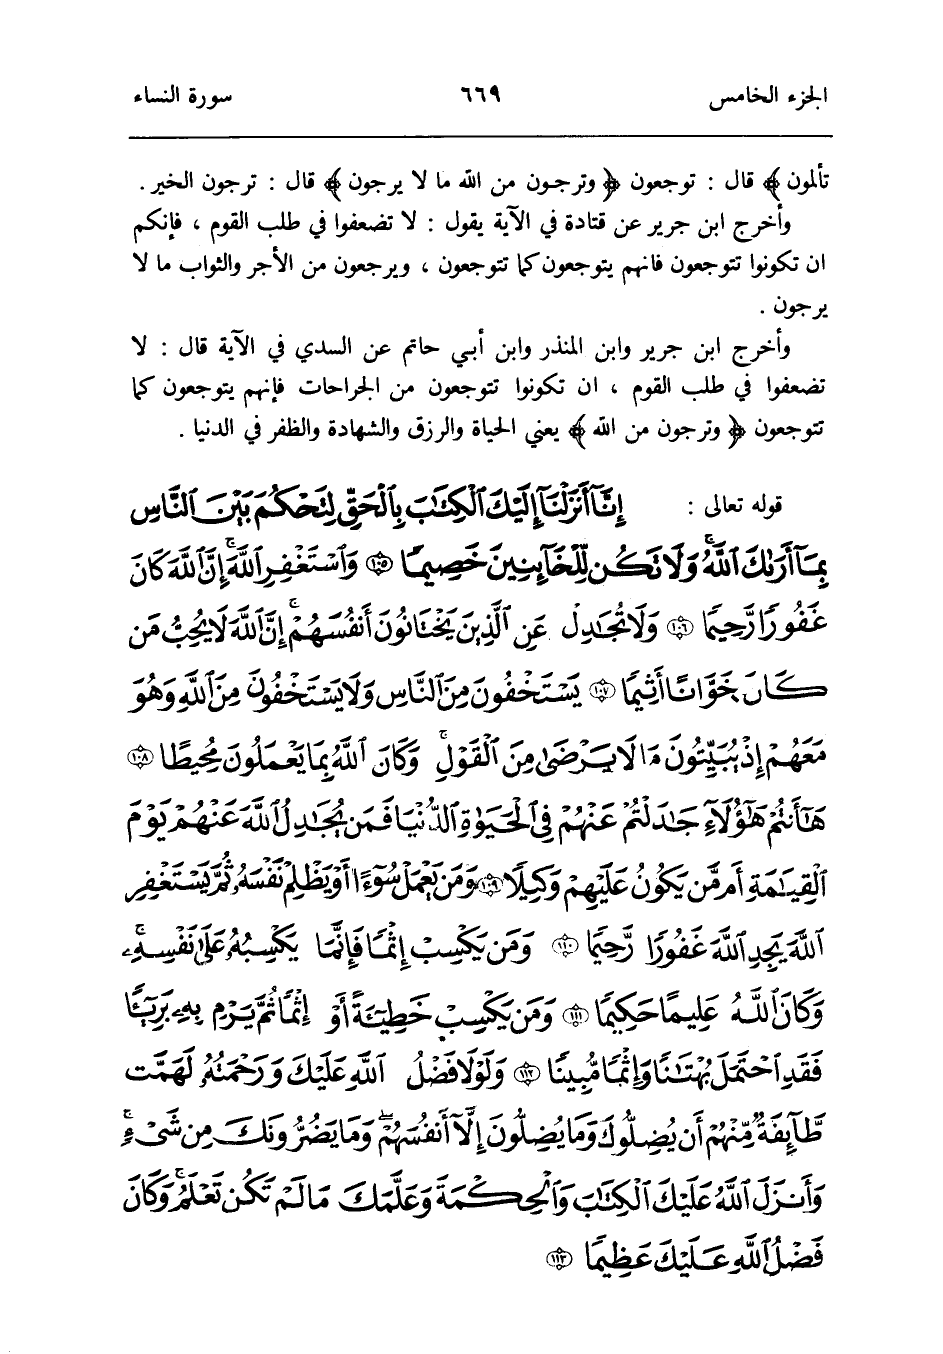 الجزء الخامس ٦٦٩ سورة النساء
تألمون﴾ قال : توجعون ﴿وترجـون من الله ما لا يرجون﴾ قال : ترجون الخير .
وأخرج ابن جرير عن قتادة في الآية يقول : لا تضعفوا في طلب القوم ، فإنكم
ان تكونوا تتوجعون فانهم يتوجعون كما تتوجعون ، ويرجعون من الأجر والثواب ما لا
يرجون .
وأخرج ابن جرير وابن المنذر وابن أبـي حاتم عن السدي في الآية قال : لا
تضعفوا في طلب القوم ، ان تكونوا تتوجعون من الجراحات فإنهم يتوجعون كما
تتوجعون ﴿وترجون من الله﴾ يعني الحياة والرزق والشهادة والظفر في الدنيا .
قوله تعالى : إِنَّآ أَنزَلْنَآ إِلَيْكَ ٱلْكِتَٰبَ بِٱلْحَقِّ لِتَحْكُمَ بَيْنَ ٱلنَّاسِ
بِمَآ أَرَىٰكَ ٱللَّهُ ۚ وَلَا تَكُن لِّلْخَآئِنِينَ خَصِيمًا ١٠٥ وَٱسْتَغْفِرِ ٱللَّهَ ۖ إِنَّ ٱللَّهَ كَانَ
غَفُورًا رَّحِيمًا ١٠٦ وَلَا تُجَٰدِلْ عَنِ ٱلَّذِينَ يَخْتَانُونَ أَنفُسَهُمْ ۚ إِنَّ ٱللَّهَ لَا يُحِبُّ مَن
كَانَ خَوَّانًا أَثِيمًا ١٠٧ يَسْتَخْفُونَ مِنَ ٱلنَّاسِ وَلَا يَسْتَخْفُونَ مِنَ ٱللَّهِ وَهُوَ
مَعَهُمْ إِذْ يُبَيِّتُونَ مَا لَا يَرْضَىٰ مِنَ ٱلْقَوْلِ ۚ وَكَانَ ٱللَّهُ بِمَا يَعْمَلُونَ مُحِيطًا ١٠٨
هَٰٓأَنتُمْ هَٰٓؤُلَآءِ جَٰدَلْتُمْ عَنْهُمْ فِى ٱلْحَيَوٰةِ ٱلدُّنْيَا فَمَن يُجَٰدِلُ ٱللَّهَ عَنْهُمْ يَوْمَ
ٱلْقِيَٰمَةِ أَم مَّن يَكُونُ عَلَيْهِمْ وَكِيلًا ١٠٩ وَمَن يَعْمَلْ سُوٓءًا أَوْ يَظْلِمْ نَفْسَهُۥ ثُمَّ يَسْتَغْفِرِ
ٱللَّهَ يَجِدِ ٱللَّهَ غَفُورًا رَّحِيمًا ١١٠ وَمَن يَكْسِبْ إِثْمًا فَإِنَّمَا يَكْسِبُهُۥ عَلَىٰ نَفْسِهِۦ ۚ
وَكَانَ ٱللَّهُ عَلِيمًا حَكِيمًا ١١١ وَمَن يَكْسِبْ خَطِيٓـَٔةً أَوْ إِثْمًا ثُمَّ يَرْمِ بِهِۦ بَرِيٓـًٔا
فَقَدِ ٱحْتَمَلَ بُهْتَٰنًا وَإِثْمًا مُّبِينًا ١١٢ وَلَوْلَا فَضْلُ ٱللَّهِ عَلَيْكَ وَرَحْمَتُهُۥ لَهَمَّت
طَّآئِفَةٌ مِّنْهُمْ أَن يُضِلُّوكَ وَمَا يُضِلُّونَ إِلَّآ أَنفُسَهُمْ ۖ وَمَا يَضُرُّونَكَ مِن شَىْءٍ ۚ
وَأَنزَلَ ٱللَّهُ عَلَيْكَ ٱلْكِتَٰبَ وَٱلْحِكْمَةَ وَعَلَّمَكَ مَا لَمْ تَكُن تَعْلَمُ ۚ وَكَانَ
فَضْلُ ٱللَّهِ عَلَيْكَ عَظِيمًا ١١٣